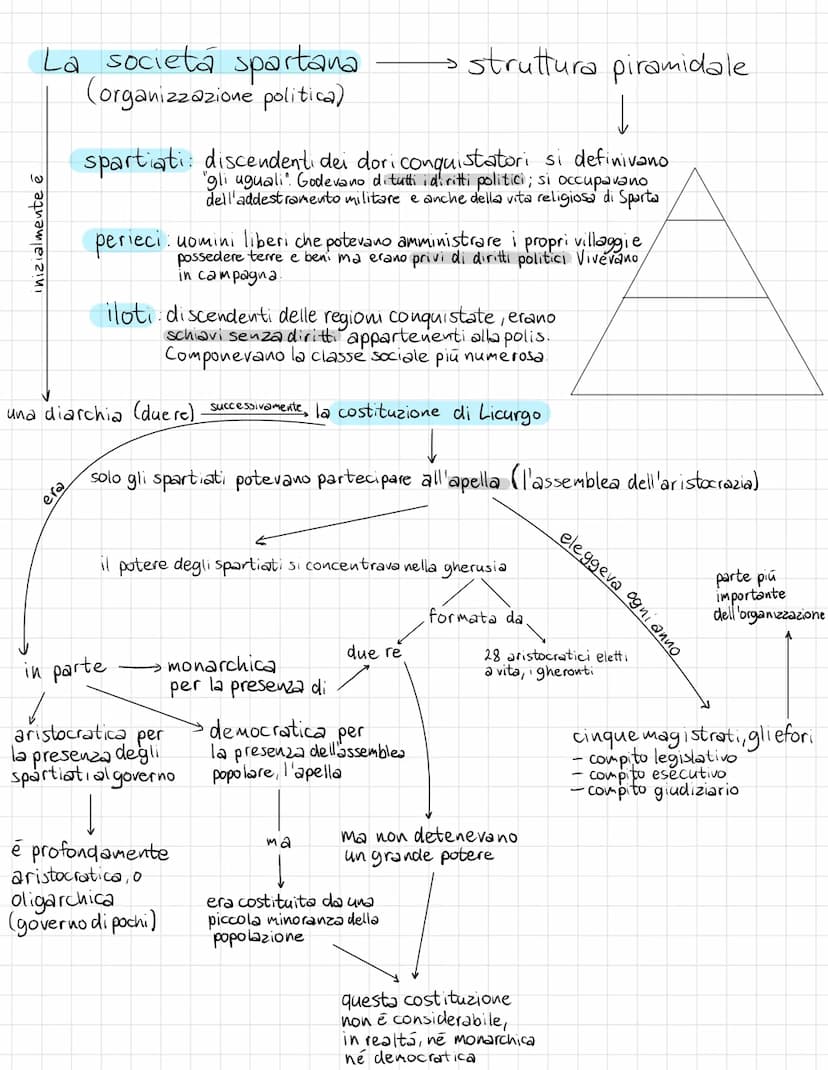 La societá spartana → struttura piramidale
(organizzazione politica)
inizialmente é
spartiati: discendenti dei dori conquistatori si definivano
"gli uguali". Godevano di tutti i diritti politici; si occupavano
dell'addestramento militare e anche della vita religiosa di Sparta
perieci: uomini liberi che potevano amministrare i propri villaggi e
possedere terre e beni ma erano privi di diritti politici Vivévano
in campagna.
iloti: discendenti delle regioni conquistate, erano
schiavi senza diritti appartenenti alla polis.
Componevano la classe sociale piú numerosa.
una diarchia (due re) successivamente la costituzione di Licurgo
era
solo gli spartiati potevano partecipare all'apella (l'assemblea dell'aristocrazia)
il potere degli spartiati si concentrava nella gherusia
eleggeva ogni anno
formata da
due re
28 aristocratici eletti
a vita, i gheronti
parte piú
importante
dell'organizzazione
in parte → monarchica
per la presenza di
aristocratica per
la presenza degli
spartiati al governo
democratica per
la presenza dell'assemblea
popolare, l'apella
cinque magistrati, gli efori
- compito legislativo
- compito esecutivo
- compito giudiziario
é profondamente
aristocratica, o
oligarchica
(governo di pochi)
ma
era costituita da una
piccola minoranza della
popolazione
ma non detenevano
un grande potere
questa costituzione
non é considerabile,
in realtá, né monarchica
né democratica